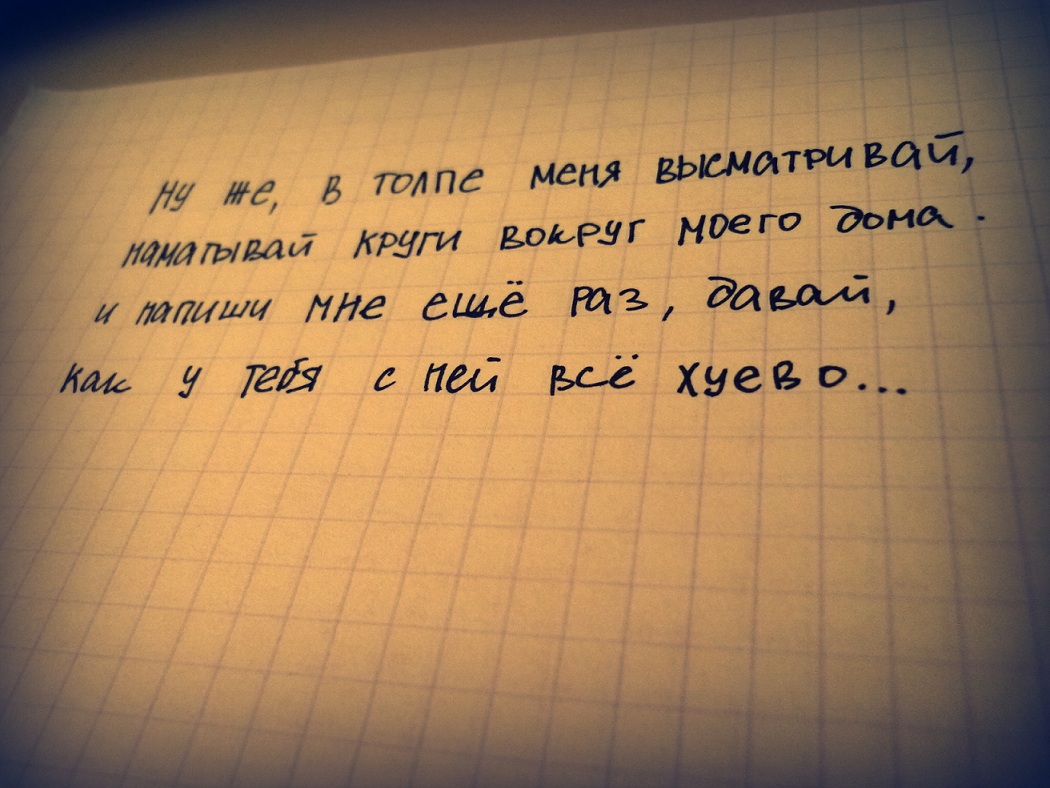 Ну же, в толпе меня высматривай,
наматывай круги вокруг моего дома.
и напиши мне ещё раз, давай,
как у тебя с ней всё хуево...